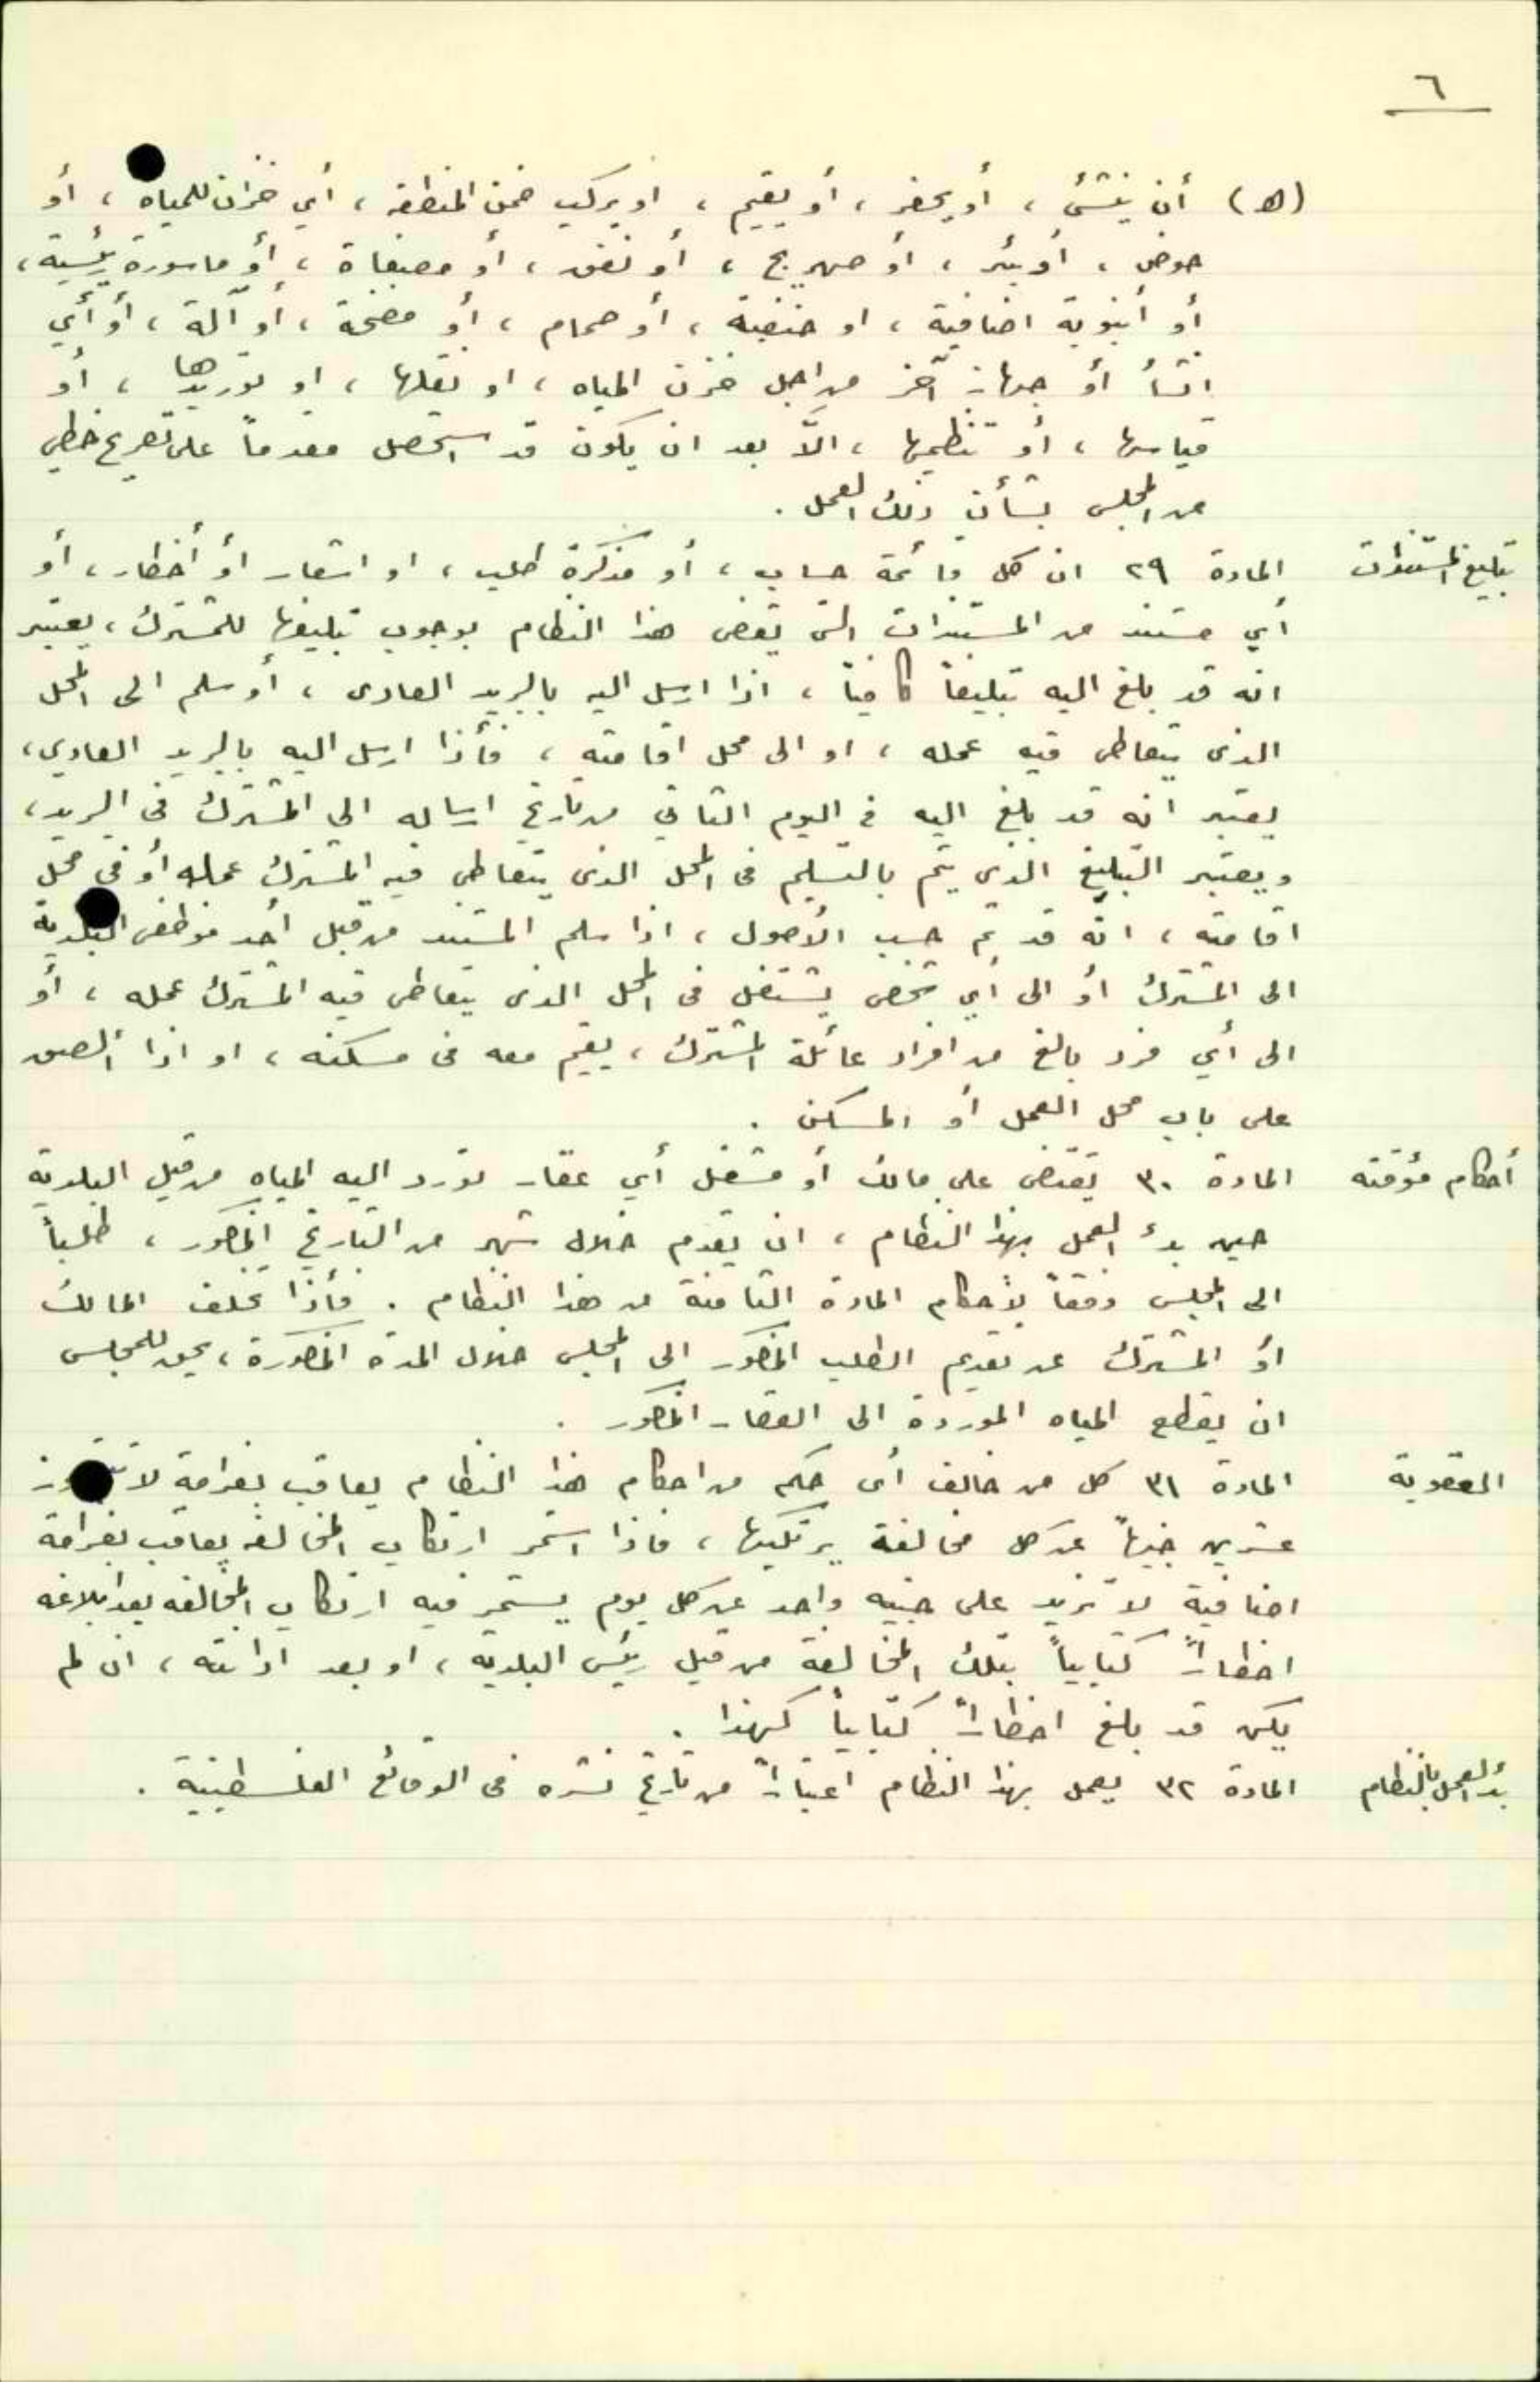 ٦
(ه) أن ينشئ ، أو يحفر ، أو يقيم ، او يركب ضمن المنطقة ، أي خزان للمياه ، أو
حوض ، أو بئر ، أو صهريج ، أو نفق ، أو مصفاة ، أو ماسورة رئيسية ،
أو أنبوبة اضافية ، او حنفية ، أو صمام ، أو مضخة ، أو آلة ، أو أي
انشأ أو جهاز آخر من اجل خزن المياه ، او نقلها ، او توريدها ، أو
قياسها ، أو تنظيمها ، الاّ بعد ان يكون قد استحصل مقدماً على تصريح خطي
من المجلس بشأن ذلك العمل .
تبليغ المستندات
المادة ٢٩ ان كل قائمة حساب ، أو مذكرة طلب ، او اشعار أو أخطار ، أو
أي مستند من المستندات التي يقضى هذا النظام بوجوب تبليغها للمشترك ، يعتبر
انه قد بلغ اليه تبليغاً كافياً ، اذا ارسل اليه بالبريد العادى ، أو سلم الى المحل
الذى يتعاطى فيه عمله ، او الى محل اقامته ، فأذا ارسل اليه بالبريد العادي ،
يعتبر انه قد بلغ اليه في اليوم الثاني من تاريخ ارساله الى المشترك في البريد ،
ويعتبر التبليغ الذي يتم بالتسليم فى المحل الذى يتعاطى فيه المشترك عمله أو في محل
اقامته ، انه قد تم حسب الأصول ، اذا سلم المستند من قبل أحد موظفى البلدية
الى المشترك أو الى أي شخص يشتغل فى المحل الذى يتعاطى فيه المشترك عمله ، أو
الى أي فرد بالغ من افراد عائلة المشترك ، يقيم معه فى مسكنه ، او اذا ألصق
على باب محل العمل أو المسكن .
أحكام مؤقته
المادة ٣٠ يقتضى على مالك أو مشغل أي عقار تورد اليه المياه من قبل البلدية
حين بدء العمل بهذا النظام ، ان يقدم خلال شهر من التاريخ المذكور ، طلباً
الى المجلس وفقاً لأحكام المادة الثامنة من هذا النظام . فأذا تخلف المالك
أو المشترك عن تقديم الطلب المذكور الى المجلس خلال المدة المذكورة ، يحق للمجلس
ان يقطع المياه الموردة الى العقار المذكور .
العقوبة
المادة ٣١ كل من خالف أى حكم من احكام هذا النظام يعاقب بغرامة لا تتجاوز
عشرين جنيهاً عن كل مخالفة يرتكبها ، فاذا استمر ارتكاب المخالفه يعاقب بغرامة
اضافية لا تزيد على جنيه واحد عن كل يوم يستمر فيه ارتكاب المخالفه بعد ابلاغه
اخطاراً كتابياً بتلك المخالفة من قبل رئيس البلدية ، او بعد ادانته ، ان لم
يكن قد بلغ اخطاراً كتابياً كهذا .
بدء العمل بالنظام
المادة ٣٢ يعمل بهذا النظام اعتباراً من تاريخ نشره فى الوقائع الفلسطينية .